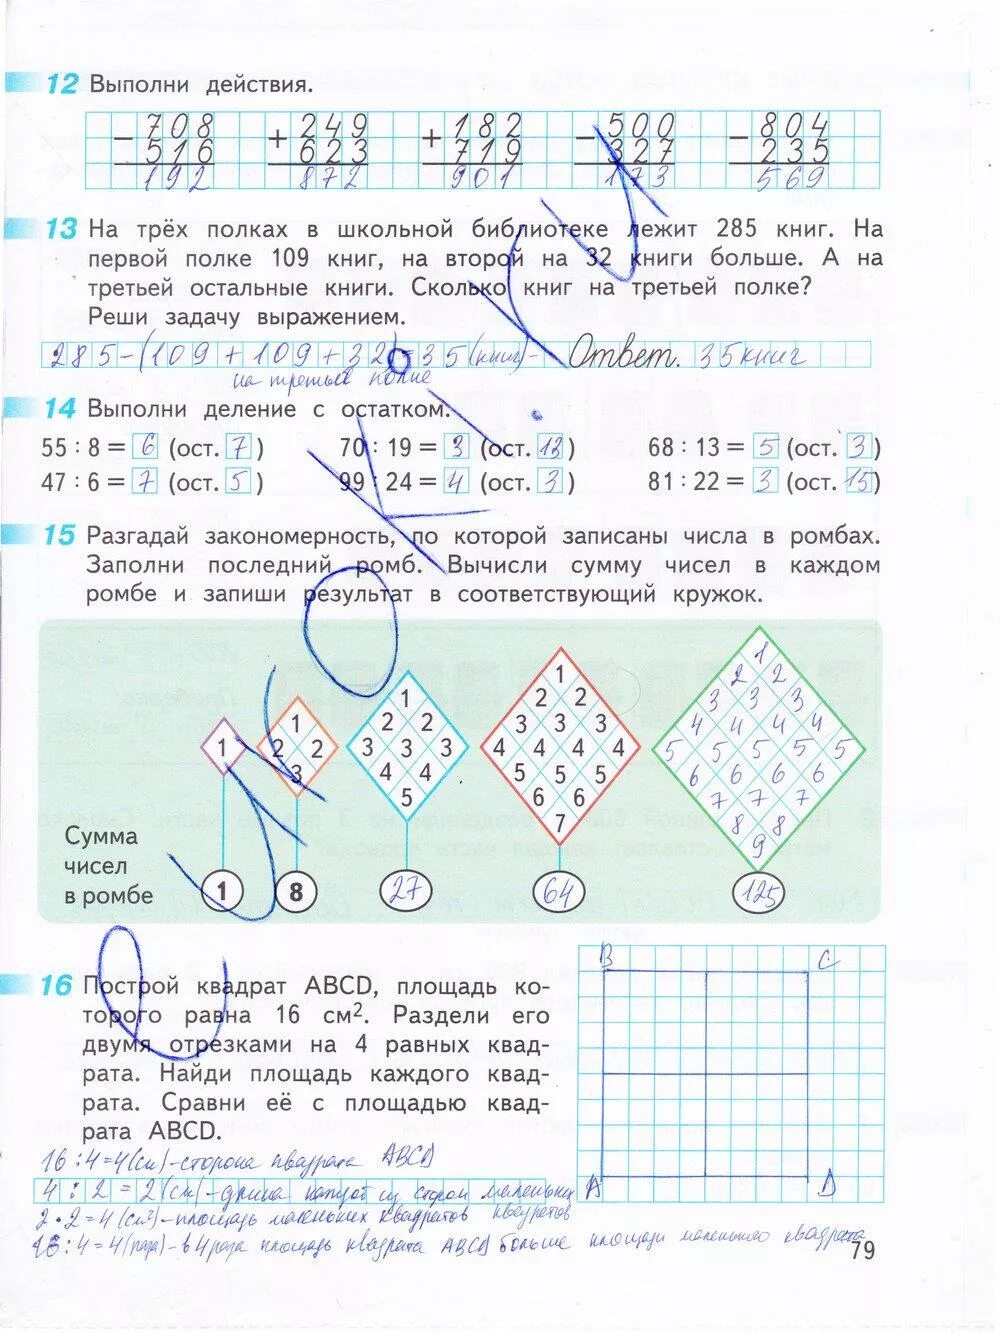 12 Выполни действия.
− 708 + 249 + 182 − 500 − 804
516 623 719 327 235
192 872 901 173 569
13 На трёх полках в школьной библиотеке лежит 285 книг. На
первой полке 109 книг, на второй на 32 книги больше. А на
третьей остальные книги. Сколько книг на третьей полке?
Реши задачу выражением.
285-(109+109+32)=35(книг)- Ответ. 35 книг
на третьей полке
14 Выполни деление с остатком.
55 : 8 = 6 (ост. 7) 70 : 19 = 3 (ост. 13) 68 : 13 = 5 (ост. 3)
47 : 6 = 7 (ост. 5) 99 : 24 = 4 (ост. 3) 81 : 22 = 3 (ост. 15)
15 Разгадай закономерность, по которой записаны числа в ромбах.
Заполни последний ромб. Вычисли сумму чисел в каждом
ромбе и запиши результат в соответствующий кружок.
1
1 2 2
1 2 2 3 3 3
1 2 2 3 3 3 4 4 4 4
1 2 2 3 3 3 3 4 4 4 4 5 5 5 5 5
4 4 5 5 5 6 6 6 6
5 6 6 7 7 7
7 8 8
9
Сумма
чисел
в ромбе
1 8 27 64 125
16 Построй квадрат ABCD, площадь ко-
торого равна 16 см². Раздели его
двумя отрезками на 4 равных квад-
рата. Найди площадь каждого квад-
рата. Сравни её с площадью квад-
рата ABCD.
B C
A D
16:4=4(см)-сторона квадрата ABCD
4:2=2(см)-длина каждой из сторон маленьких
квадратов
2·2=4(см²)-площадь маленьких квадратов
16:4=4(раза)-в 4 раза площадь квадрата ABCD больше площади маленького квадрата
79
e UROKI.RU